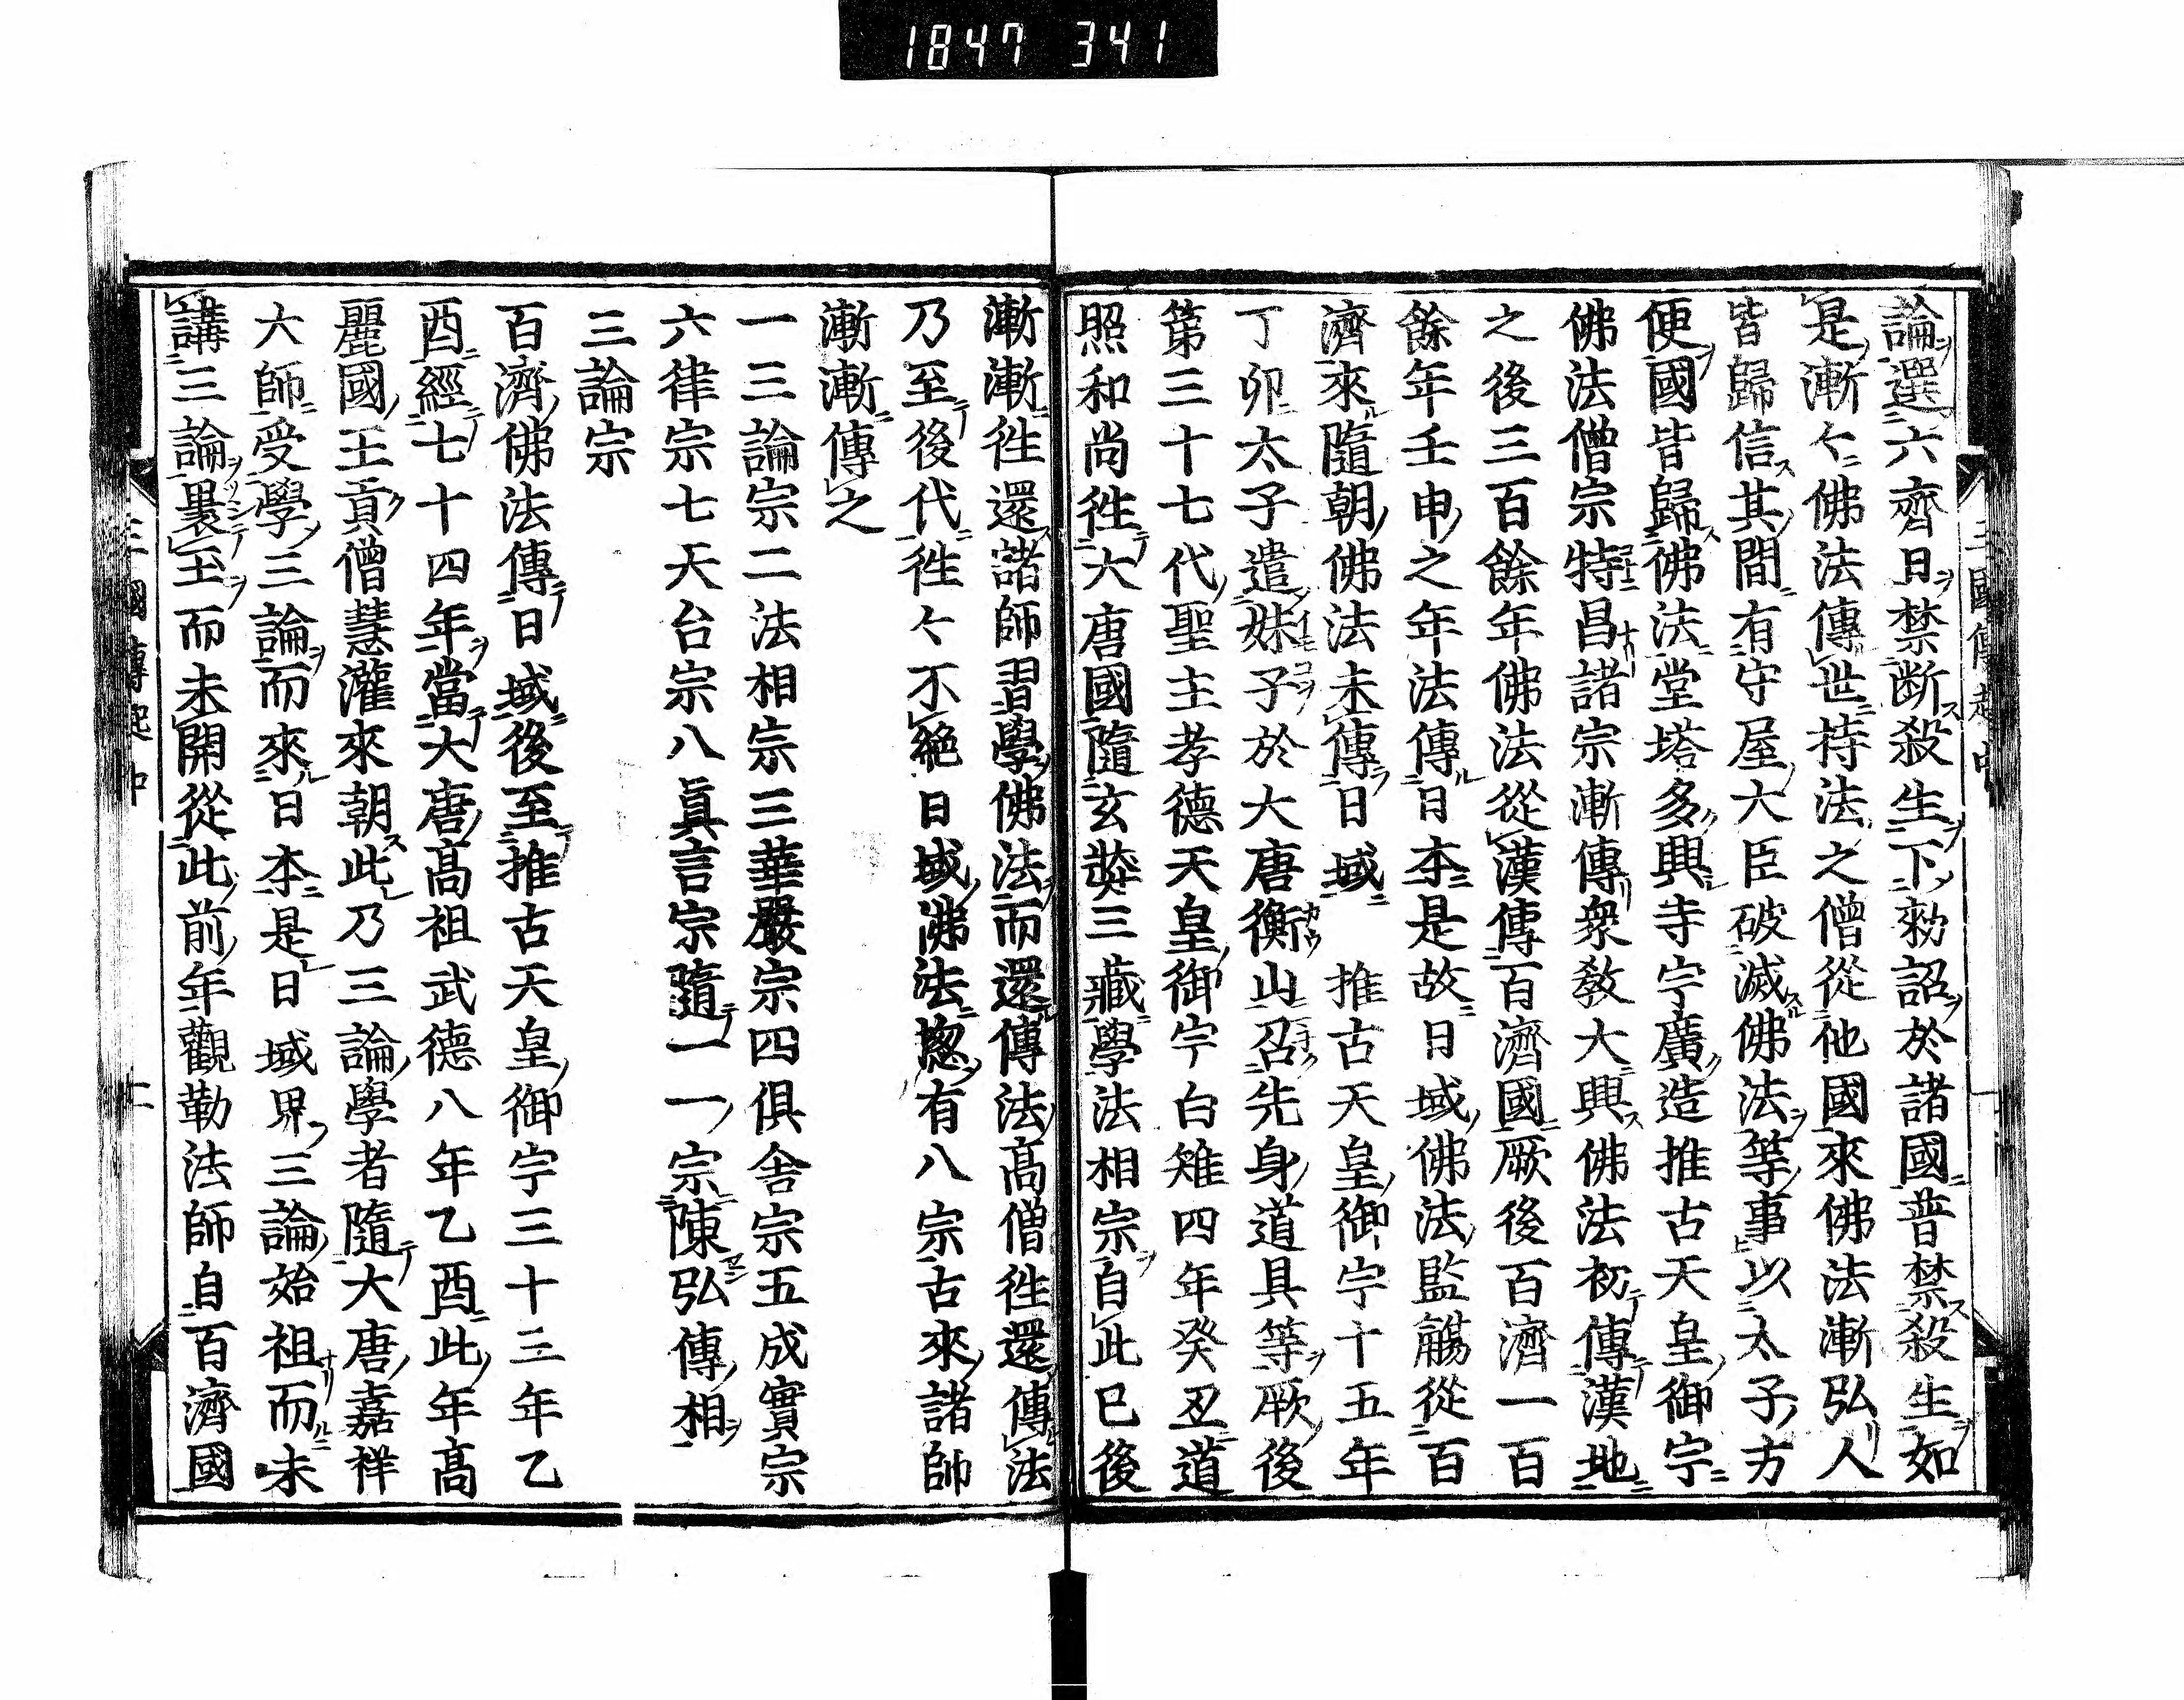 1847 341
論選六齊日禁断殺生下勅詔於諸國普禁殺生如
是漸々佛法傳世持法之僧從他國來佛法漸弘人
皆歸信其間有守屋大臣破滅佛法等事以太子方
便國皆歸佛法堂塔多興寺宇廣造推古天皇御宇
佛法僧宗特昌諸宗漸傳衆教大興佛法初傳漢地
之後三百餘年佛法從漢傳百濟國厥後百濟一百
餘年壬申之年法傳日本是故日域佛法監觴從百
濟來隨朝佛法未傳日域 推古天皇御宇十五年
丁卯太子遣妹子於大唐衡山召先身道具等厥後
第三十七代聖主孝德天皇御宇白雉四年癸丑道
照和尚徃大唐國隨玄奘三藏學法相宗自此已後
漸漸徃還諸師習學佛法而還傳法高僧徃還傳法
乃至後代徃々不絶日域佛法惣有八宗古來諸師
漸漸傳之
一三論宗二法相宗三華嚴宗四俱舍宗五成實宗
六律宗七天台宗八眞言宗隨一一宗陳弘傳相
三論宗
百濟佛法傳日域後至推古天皇御宇三十三年乙
酉經七十四年當大唐高祖武德八年乙酉此年高
麗國王貢僧慧灌來朝此乃三論學者隨大唐嘉祥
大師受學三論而來日本是日域界三論始祖而未
講三論褁至而未開從此前年觀勒法師自百濟國